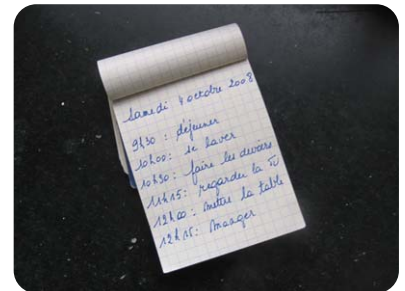 Samedi 4 octobre 2008
9h30 : déjeuner
10h00 : se laver
10h30 : faire les devoirs
11h15 : regarder la TV
12h00 : mettre la table
12h15 : manger